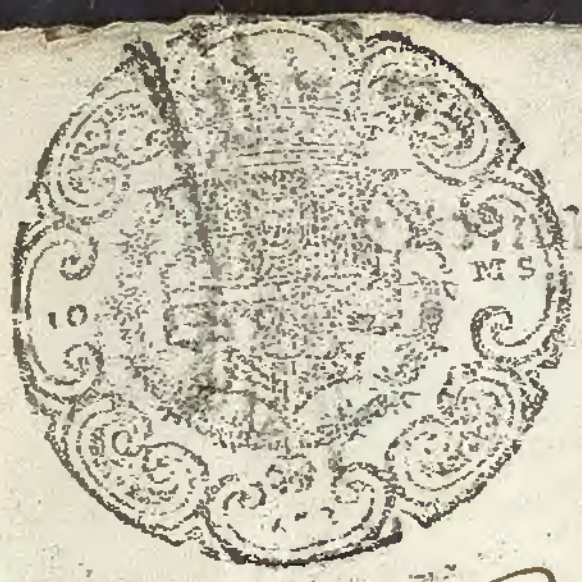 10 MS